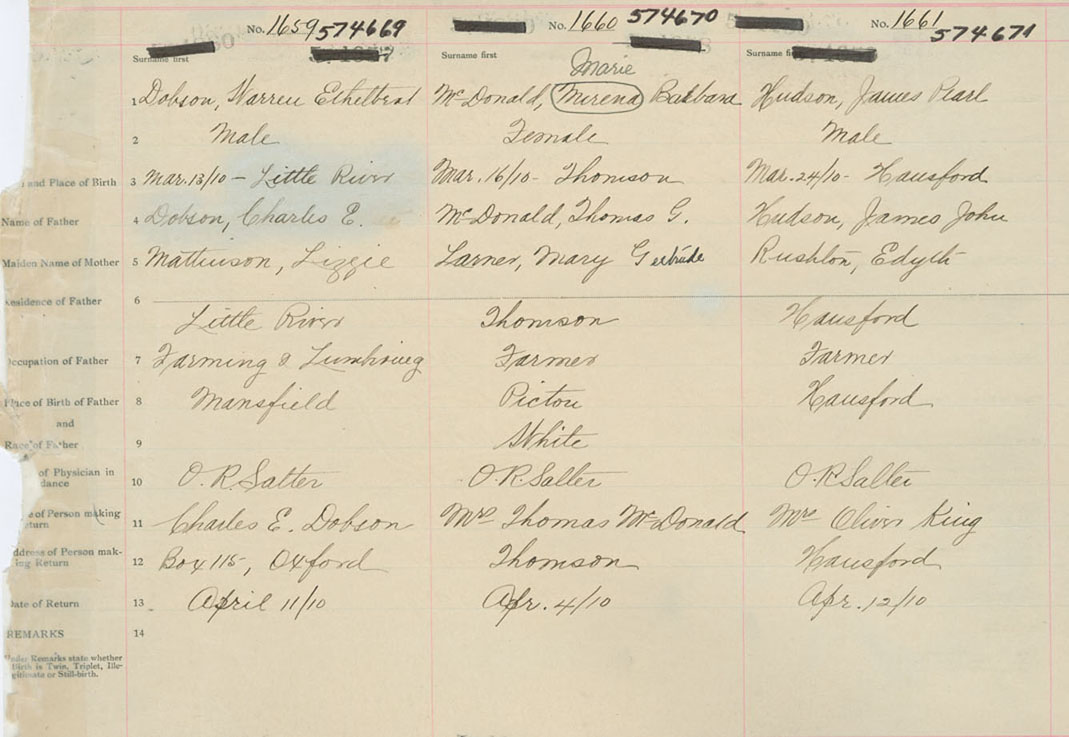 No. 1659 574669 No. 1660 574670 No. 1661 574671
Surname first Surname first Surname
Marie
1 Dobson, Warren Ethelbert McDonald, Merena Barbara Hudson, James Pearl
2 Male Female Male
and Place of Birth 3 Mar. 13/10 - Little River Mar. 16/10 - Thomson Mar. 24/10 - Hansford
Name of Father 4 Dobson, Charles E. McDonald, Thomas G. Hudson, James John
Maiden Name of Mother 5 Mattinson, Lizzie Larner, Mary Gertrude Rushton, Edyth
Residence of Father 6
Little River Thomson Hansford
Occupation of Father 7 Farming & Lumbering Farmer Farmer
Place of Birth of Father 8 Mansfield Pictou Hansford
and
Race of Father 9 White
of Physician in
dance 10 O. R. Salter O. R. Salter O. R. Salter
e of Person making
eturn 11 Charles E. Dobson Mrs Thomas McDonald Mrs Oliver King
ddress of Person mak-
ing Return 12 Box 115, Oxford Thomson Hansford
Date of Return 13 April 11/10 Apr. 4/10 Apr. 12/10
REMARKS 14
Under Remarks state whether
Birth is Twin, Triplet, Ille-
gitimate or Still-birth.